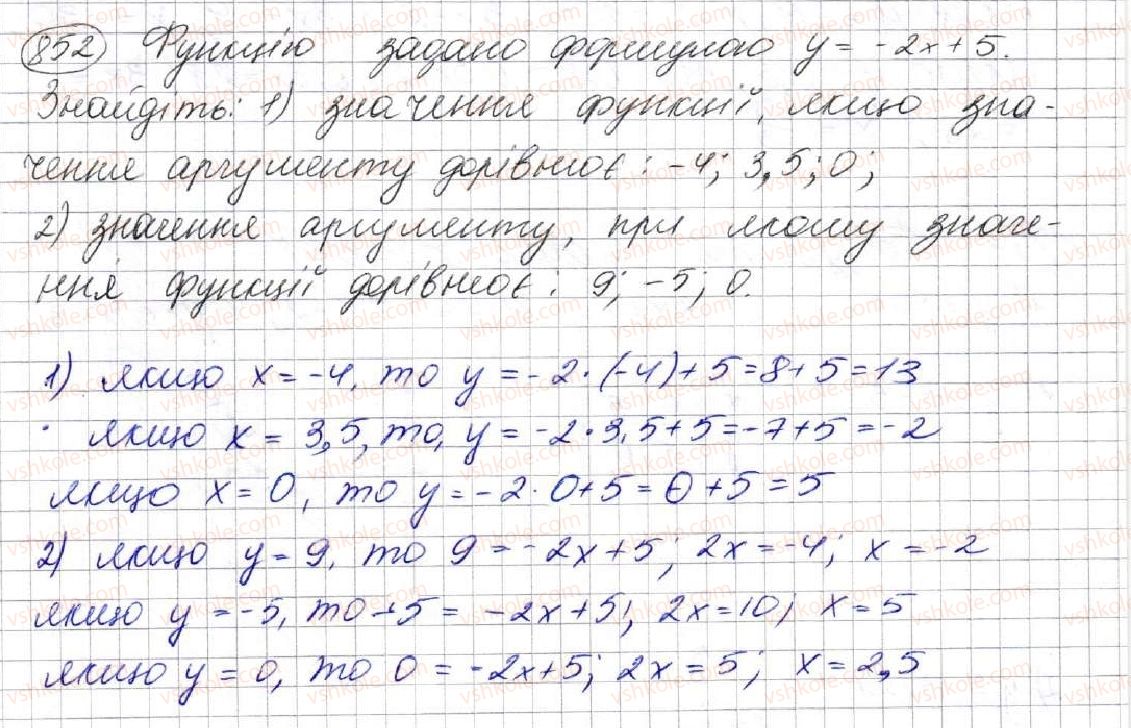 852 Функцію задано формулою y = -2x + 5.
Знайдіть: 1) значення функції, якщо зна-
чення аргументу дорівнює: -4; 3,5; 0;
2) значення аргументу, при якому значе-
ння функції дорівнює: 9; -5; 0.
1) якщо x = -4, то y = -2·(-4)+5=8+5=13
якщо x = 3,5, то, y = -2·3,5+5=-7+5=-2
якщо x = 0, то y = -2·0+5=0+5=5
2) якщо y = 9, то 9 = -2x+5; 2x=-4; x=-2
якщо y = -5, то -5 = -2x+5; 2x=10; x=5
якщо y = 0, то 0 = -2x+5; 2x=5; x=2,5
vshkole.com